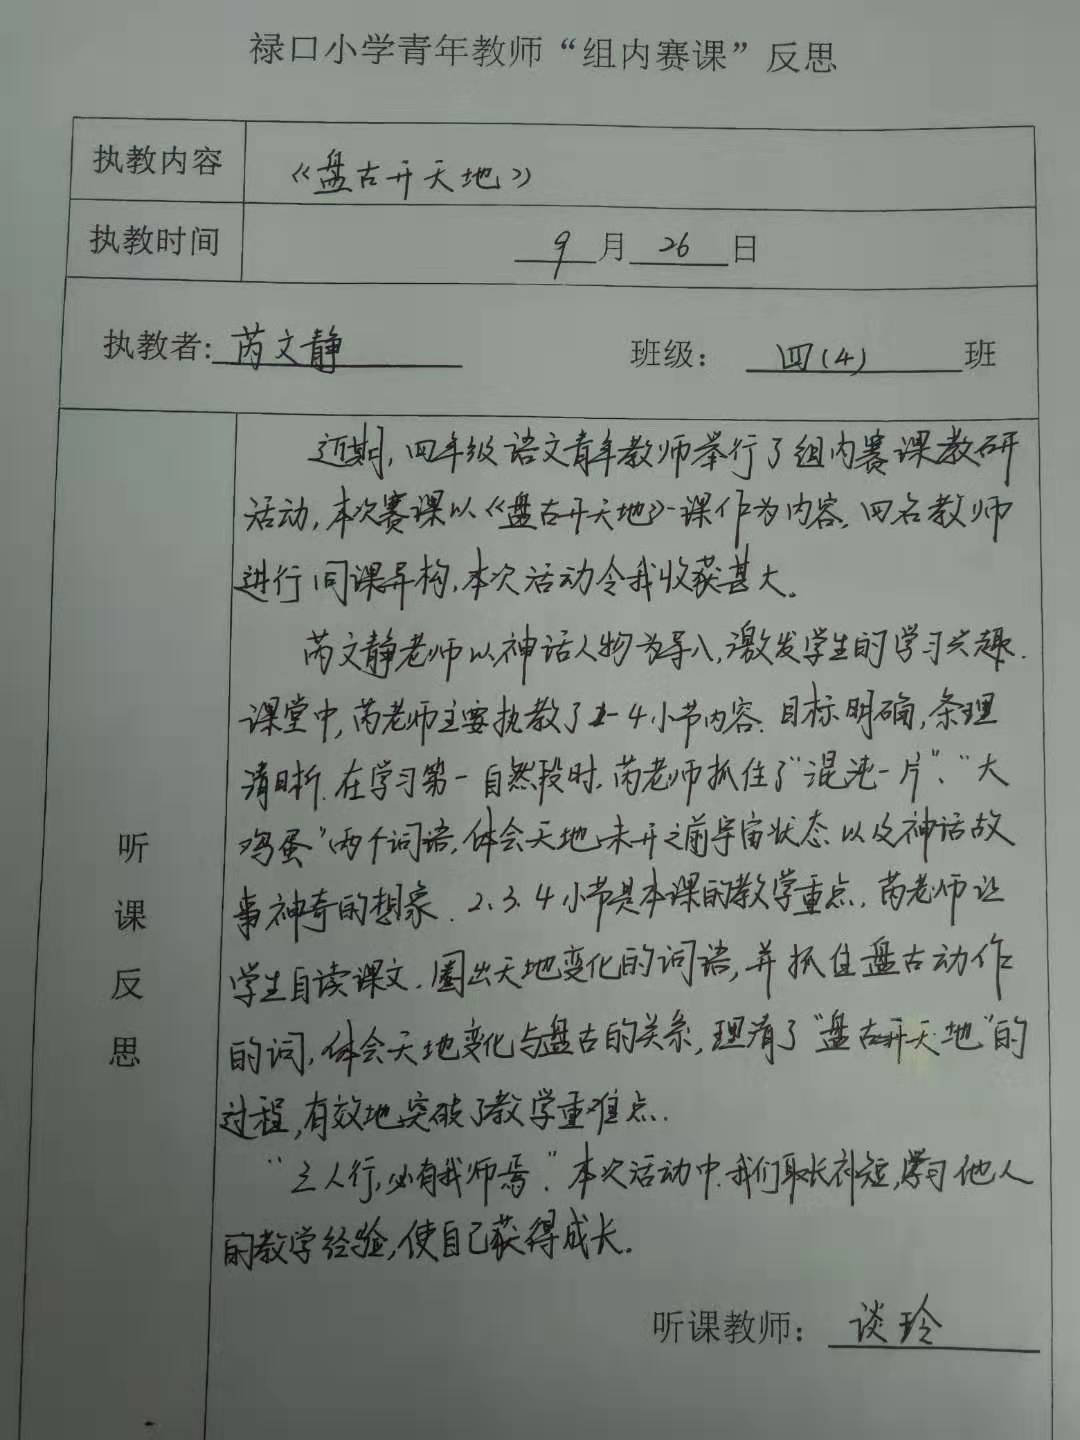 禄口小学青年教师“组内赛课”反思
执教内容 《盘古开天地》
执教时间 9月26日
执教者:芮文静 班级：四(4)班
听课反思
近期,四年级语文青年教师举行了组内赛课教研
活动,本次赛课以《盘古开天地》一课作为内容,四名教师
进行同课异构,本次活动令我收获甚大。
芮文静老师以神话人物为导入,激发学生的学习兴趣.
课堂中,芮老师主要执教了1-4小节内容.目标明确,条理
清晰.在学习第一自然段时,芮老师抓住了“混沌一片”、“大
鸡蛋”两个词语,体会天地未开之前宇宙状态以及神话故
事神奇的想象.2、3、4小节是本课的教学重点,芮老师让
学生自读课文.圈出天地变化的词语,并抓住盘古动作
的词,体会天地变化与盘古的关系,理清了“盘古开天地”的
过程,有效地突破了教学重难点.
“三人行,必有我师焉”.本次活动中.我们取长补短,学习他人
的教学经验,使自己获得成长.
听课教师：谈玲